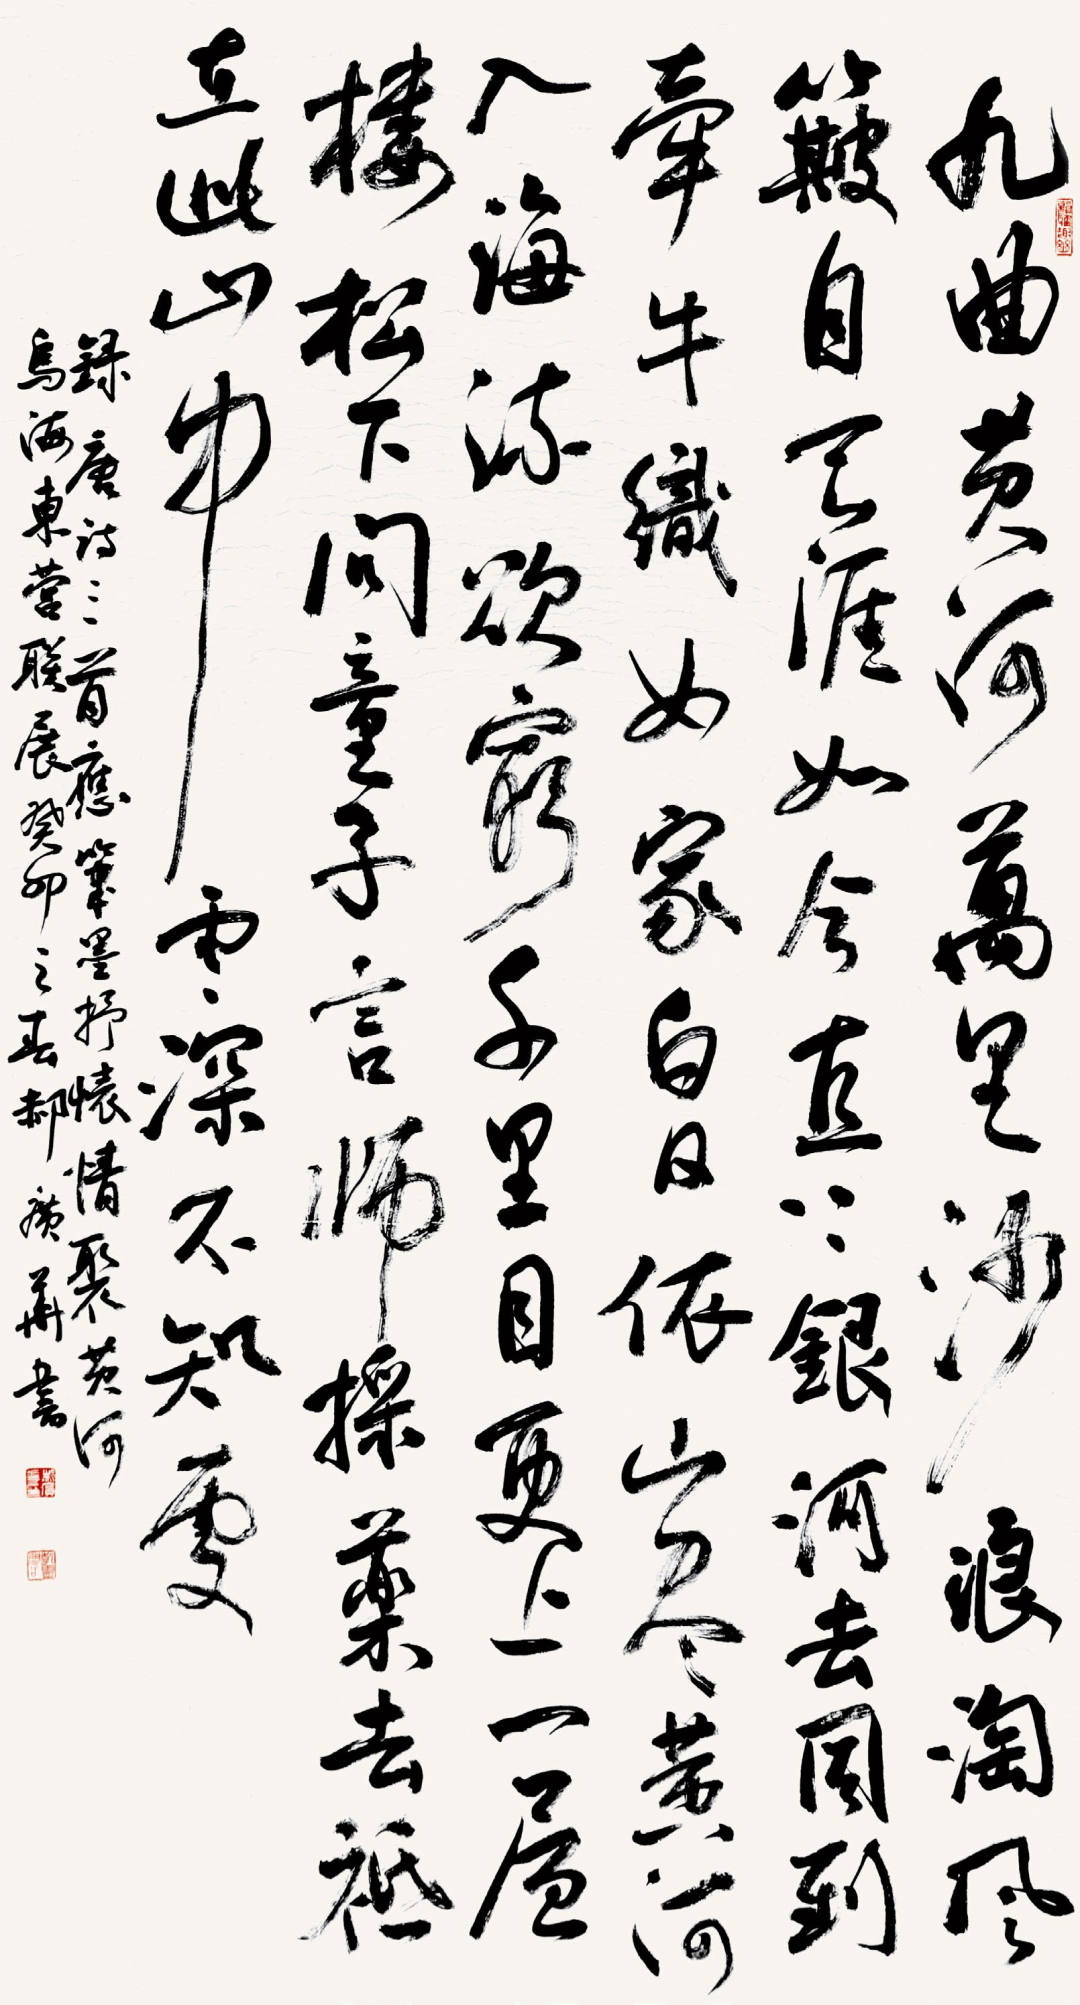 九曲黄河萬里沙浪淘風
簸自天涯如今直上銀河去同到
牽牛織女家白日依山盡黄河
入海流欲窮千里目更上一層
樓松下問童子言師採藥去祗
在此山中雲深不知處
録唐詩三首應筆墨抒懷情聚黄河
烏海東營联展癸卯之春郝廣華書